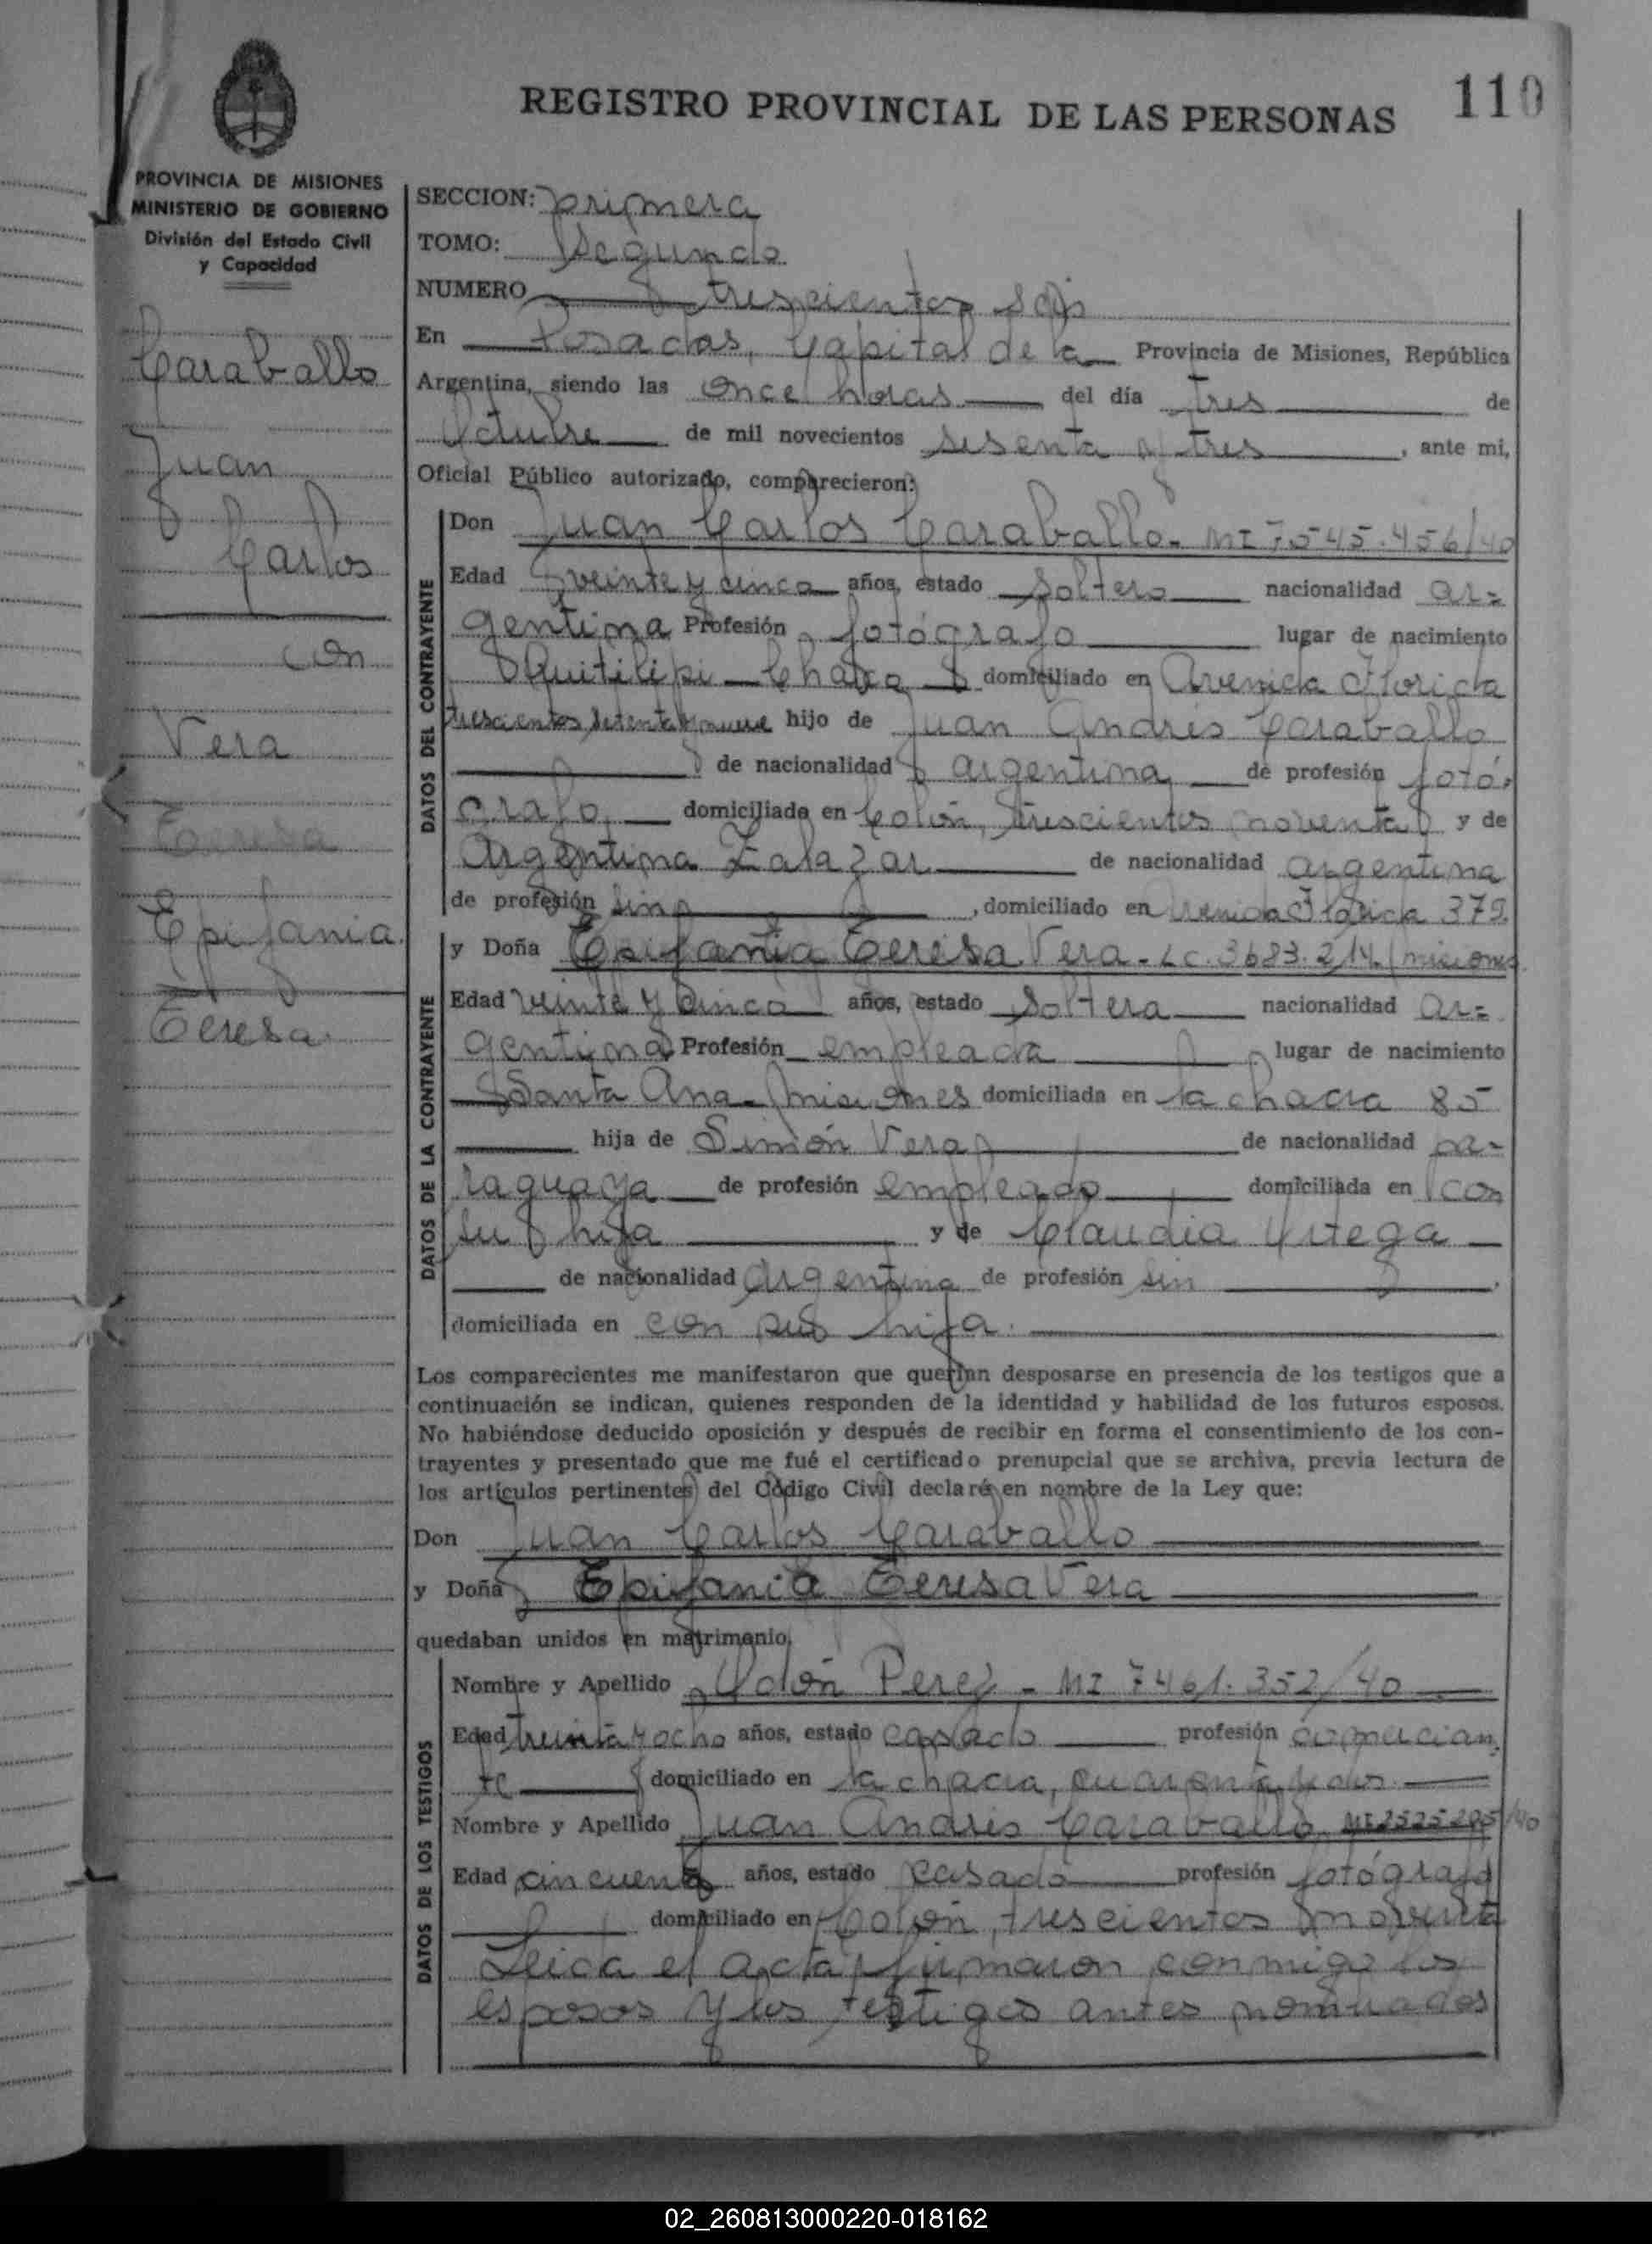 REGISTRO PROVINCIAL DE LAS PERSONAS
110
PROVINCIA DE MISIONES
MINISTERIO DE GOBIERNO
División del Estado Civil
y Capacidad
Caraballo
Juan
Carlos
con
Vera
Teresa
Epifania
Teresa
SECCION: primera
TOMO: Segundo
NUMERO trescientos seis
En Posadas, Capital de la Provincia de Misiones, República
Argentina, siendo las once horas del día tres de
Octubre de mil novecientos sesenta y tres, ante mi,
Oficial Público autorizado, comparecieron:
DATOS DEL CONTRAYENTE
Don Juan Carlos Caraballo - MI 7.545.456/40
Edad veinte y cinco años, estado Soltero nacionalidad ar=
gentina Profesión fotógrafo lugar de nacimiento
Quitilipi - Chaco domiciliado en Avenida Florida
trescientos setenta y nueve hijo de Juan Andrés Caraballo
de nacionalidad argentina de profesión fotó-
grafo domiciliado en Colón, trescientos noventa y de
Argentina Zalazar de nacionalidad argentina
de profesión sin, domiciliado en Avenida Florida 379.
DATOS DE LA CONTRAYENTE
y Doña Epifania Teresa Vera - LC. 3683.214 / misiones
Edad veinte y cinco años, estado Soltera nacionalidad ar=
gentina Profesión empleada lugar de nacimiento
Santa Ana - misiones domiciliada en la chacra 85
hija de Simón Vera de nacionalidad pa-
raguaya de profesión empleado domiciliada en con
su hija y de Claudia Ortega
de nacionalidad argentina de profesión sin
domiciliada en con su hija.
Los comparecientes me manifestaron que querían desposarse en presencia de los testigos que a
continuación se indican, quienes responden de la identidad y habilidad de los futuros esposos.
No habiéndose deducido oposición y después de recibir en forma el consentimiento de los con-
trayentes y presentado que me fué el certificado prenupcial que se archiva, previa lectura de
los artículos pertinentes del Código Civil declaré en nombre de la Ley que:
Don Juan Carlos Caraballo
y Doña Epifania Teresa Vera
quedaban unidos en matrimonio.
DATOS DE LOS TESTIGOS
Nombre y Apellido Perez - MI 7461.352/40
Edad treinta y ocho años, estado casado profesión comercian
te domiciliado en la chacra, cuarenta y dos
Nombre y Apellido Juan Andrés Caraballo MI 2525205/40
Edad cincuenta años, estado casado profesión fotógrafo
domiciliado en Colón, trescientos noventa
Leida el acta firmaron conmigo los
esposos y los testigos antes nombrados
02_260813000220-018162